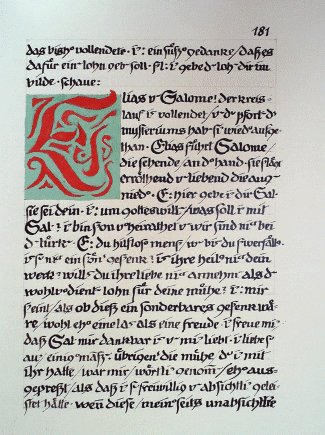 181
das bish vollendete · i: ein süß gedanke/ daß es
dafür ein lohn geb soll · S: i gebe d loh dir im
bilde · schaue:
Elias u Salome! der kreis-
lauf i vollendet/ u d pfort d
mysteriums hab si wied aufge-
than · Elias führt Salome/
die sehende/ an d hand · sie schlägt
erröthend u liebend die aug
nied · E: hier gebe i dir Sal ·
sie sei dein · i: um gotteswill/ was soll i mit
Sal? i bin son verheirathet u wir sind ni bei
d türk · E: du hilflos mens/ w bist du swerfäll ·
i s ni ein sön gesenk? i ihre heil ni dein
werk? will du ihre liebe ni annehm als d
wohlverdient lohn für deine mühe? i: mir
seint/ als ob dieß ein sonderbares gesenk wä-
re/ wohl eh eine last als eine freude · i freue mi
daß Sal mir dankbar i u mi liebt · i liebe s
au/ einigmaß · übrigen die mühe d i mit
ihr hatte/ war mir/ wörtli genom/ eh aus-
gepreßt/ als daß i s freiwillig u absichtli gelei-
stet hätte · wen diese/ meinseits unabsichtli